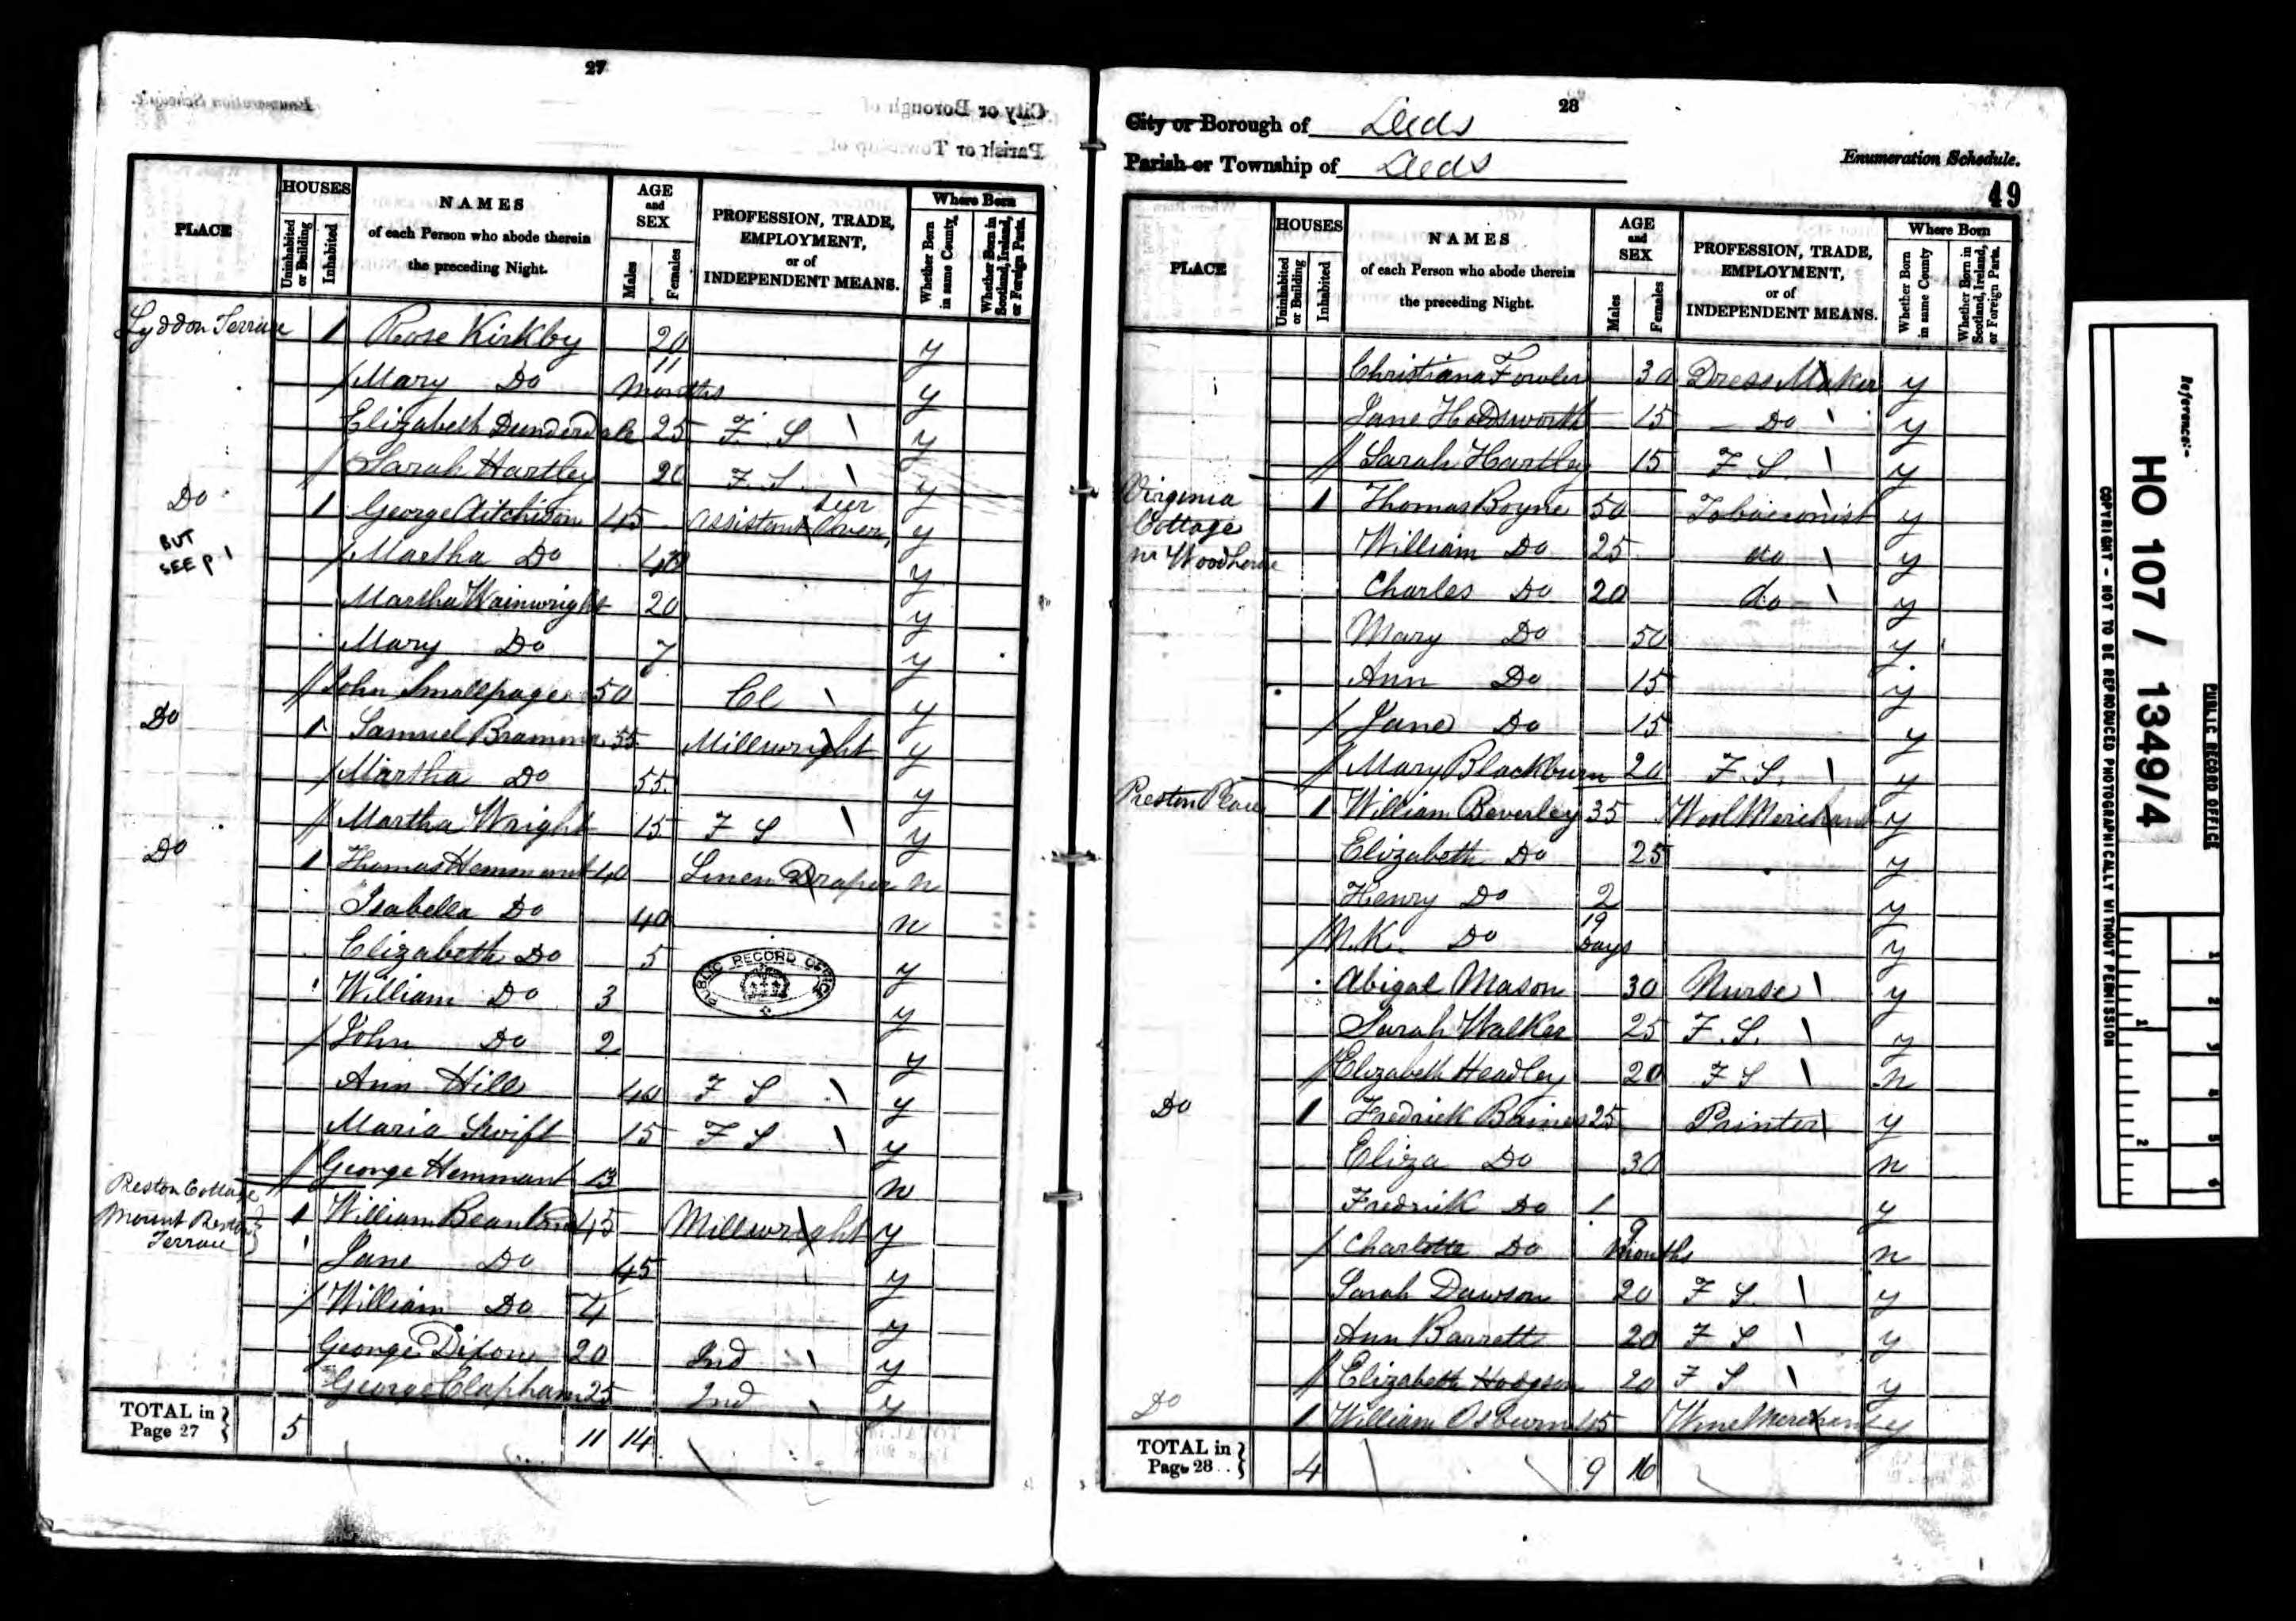 27
PLACE
HOUSES
Uninhabited or Building
Inhabited
NAMES
of each Person who abode therein
the preceding Night.
AGE
and
SEX
Males
Females
PROFESSION, TRADE,
EMPLOYMENT,
or of
INDEPENDENT MEANS.
Where Born
Whether Born in same County
Whether Born in Scotland, Ireland, or Foreign Parts.
Lyddon Terrace 1 Rose Kirkby 20 y
Mary Do 11 Months y
Elizabeth Dunderdale 25 F. S y
Sarah Hartley 20 F. S. y
Do 1 George Aitchison 45 Assistant Overseer y
BUT
SEE p. 1
Martha Do y
Martha Wainwright 20 y
Mary Do 7 y
John Smallpage 50 Cl y
Do 1 Samuel Bramma 55 Millwright y
Martha Do 55 y
Martha Wright 15 F S y
Do 1 Thomas Hemmant 40 Linen Draper n
Isabella Do 40 n
Elizabeth Do 5 y
PUBLIC RECORD OFFICE
William Do 3 y
John Do 2 y
Ann Hill 40 F S y
Maria Swift 15 F S y
George Hemmant 13 n
Preston Cottage
Mount Preston
Terrace
1 William Beanland 45 Millwright y
Jane Do 45 y
William Do 4 y
George Dixon 20 Ind y
George Clapham 25 Ind y
TOTAL in
Page 27 } 5 11 14
28
City or Borough of Leeds
Parish or Township of Leeds
Enumeration Schedule.
49
PLACE
HOUSES
Uninhabited or Building
Inhabited
NAMES
of each Person who abode therein
the preceding Night.
AGE
and
SEX
Males
Females
PROFESSION, TRADE,
EMPLOYMENT,
or of
INDEPENDENT MEANS.
Where Born
Whether Born in same County
Whether Born in Scotland, Ireland, or Foreign Parts.
Christiana Fowler 30 Dress Maker y
Jane Hodsworth 15 Do y
Sarah Hartley 15 F S. y
Virginia
Cottage
nr Woodhouse
1 Thomas Boyne 50 Tobacconist y
William Do 25 do y
Charles Do 20 do y
Mary Do 50 y
Ann Do 15 y
Jane Do 15 y
Mary Blackburn 20 F. S. y
Preston Place 1 William Beverley 35 Wool Merchant y
Elizabeth Do 25 y
Henry Do 2 y
N. K. Do 19 Days y
Abigal Mason 30 Nurse y
Sarah Walker 25 F. S. y
Elizabeth Headley 20 F S n
Do 1 Fredrick Baines 25 Printer y
Eliza Do 30 n
Fredrick Do 1 y
Charlotte Do 9 Months n
Sarah Dawson 20 F S. y
Ann Barrett 20 F S y
Elizabeth Hodgson 20 F S y
Do 1 William Osburn 45 Wine Merchant y
TOTAL in
Page 28 .. } 4 9 16
Reference:-
HO 107 / 1349/4
PUBLIC RECORD OFFICE
COPYRIGHT - NOT TO BE REPRODUCED PHOTOGRAPHICALLY WITHOUT PERMISSION
1 2 3 4 5 6
1 2